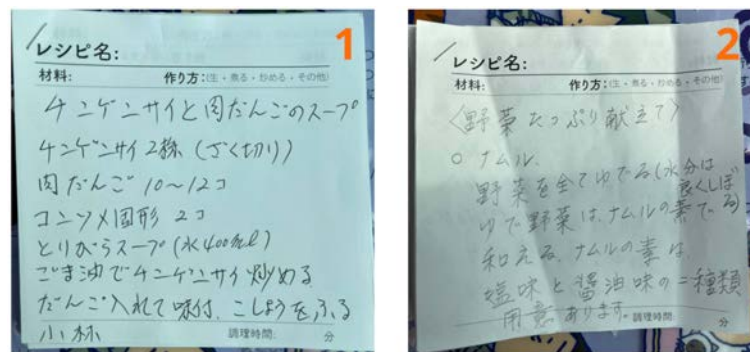 1
レシピ名:
材料: 作り方:(生・煮る・炒める・その他)
チンゲンサイと肉だんごのスープ
チンゲンサイ 2株 (ざく切り)
肉だんご 10〜12コ
コンソメ固形 2コ
とりがらスープ (水400ml)
ごま油でチンゲンサイ炒める
だんご入れて味付、こしょうをふる
小林
調理時間: 分
2
レシピ名:
材料: 作り方:(生・煮る・炒める・その他)
〈野菜たっぷり献立て〉
○ ナムル.
野菜を全てゆでる(水分は
良くしぼる)
ゆで野菜は、ナムルの素で
和える、ナムルの素は、
塩味と醤油味の二種類
用意あります。
調理時間: 分